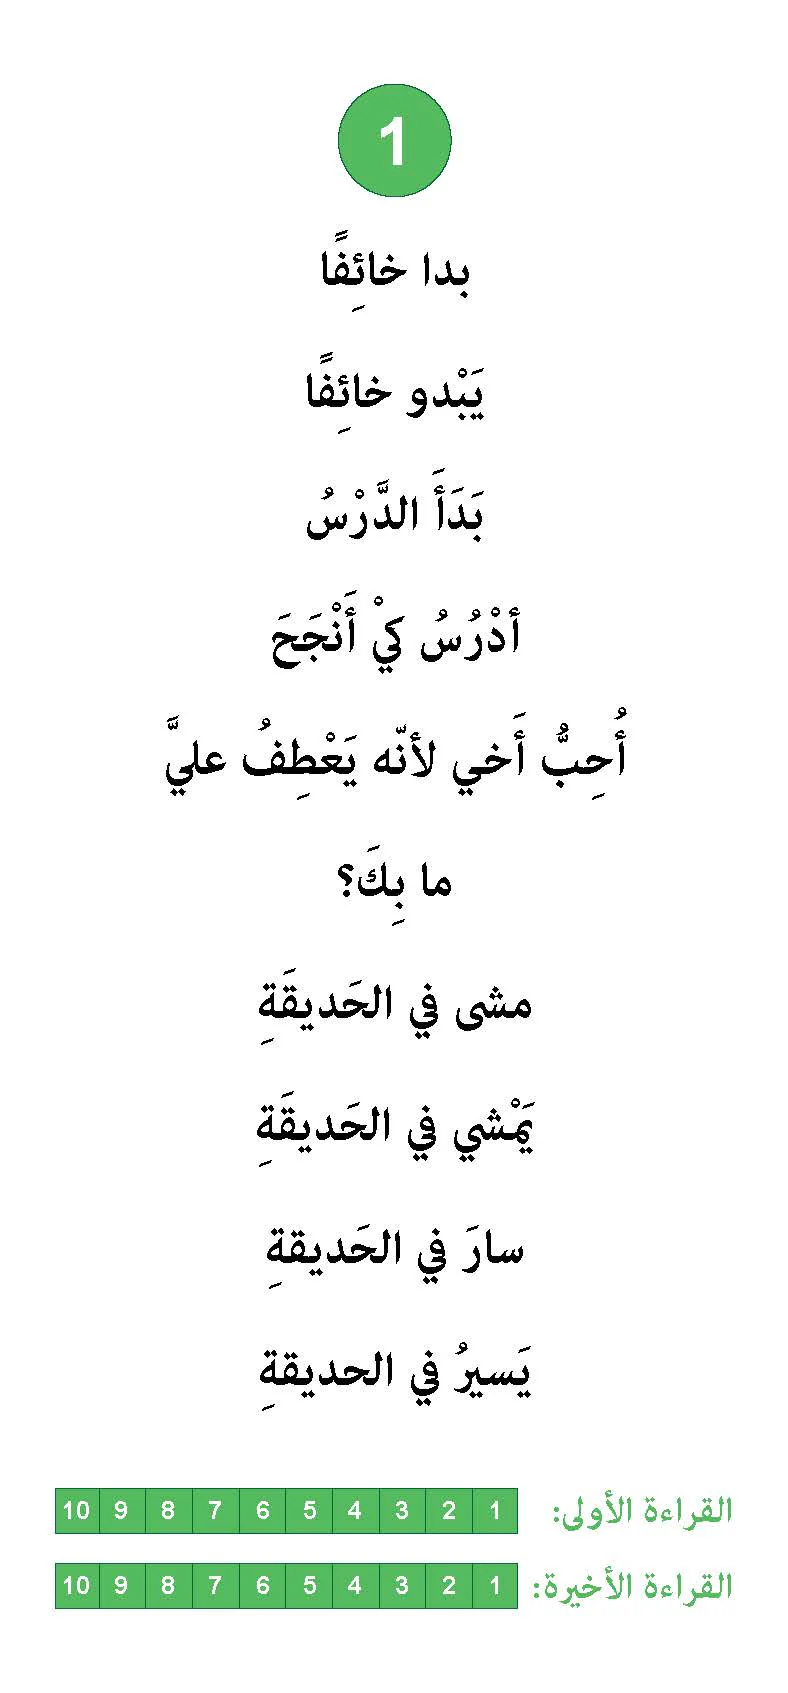 1
بدا خائِفًا
يَبْدو خائِفًا
بَدَأَ الدَّرْسُ
أدْرُسُ كيْ أَنْجَحَ
أُحِبُّ أَخي لأنّه يَعْطِفُ عليَّ
ما بِكَ؟
مشى في الحَديقَةِ
يَمْشي في الحَديقَةِ
سارَ في الحَديقةِ
يَسيرُ في الحديقةِ
القراءة الأولى: 1 2 3 4 5 6 7 8 9 10
القراءة الأخيرة: 1 2 3 4 5 6 7 8 9 10